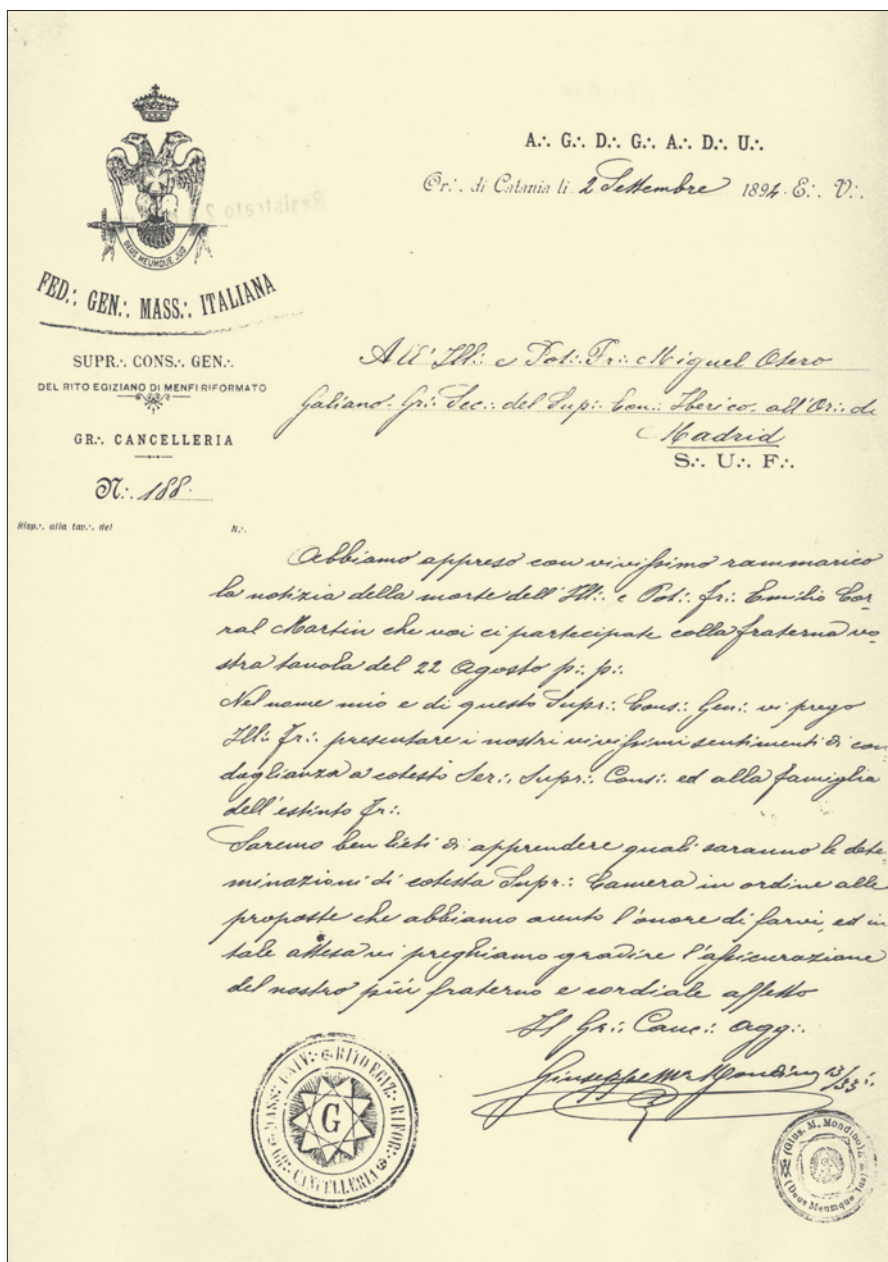 A∴ G∴ D∴ G∴ A∴ D∴ U∴
Or∴ di Catania li 2 Settembre 1894 E∴ V∴
DEUS MEUMQUE JUS
FED∴ GEN∴ MASS∴ ITALIANA
SUPR∴ CONS∴ GEN∴
DEL RITO EGIZIANO DI MENFI RIFORMATO
GR∴ CANCELLERIA
N∴ 188.
Risp∴ alla tav∴ del N∴
All' Ill∴ e Pot∴ Fr∴ Miguel Otero
Galiano Gr∴ Sec∴ del Sup∴ Con∴ Iberico all'Or∴ di
Madrid
S∴ U∴ F∴
Abbiamo appreso con vivissimo rammarico
la notizia della morte dell'Ill∴ e Pot∴ Fr∴ Emilio Cor-
ral Martin che voi ci partecipate colla fraterna vo-
stra tavola del 22 Agosto p∴ p∴
Nel nome mio e di questo Supr∴ Cons∴ Gen∴ vi prego
Ill∴ Fr∴ presentare i nostri vivissimi sentimenti di con
doglianza a cotesto Ser∴ Supr∴ Cons∴ ed alla famiglia
dell'estinto Fr∴
Saremo ben lieti di apprendere quali saranno le dete-
minazioni di cotesta Supr∴ Camera in ordine alle
proposte che abbiamo avuto l'onore di farvi, ed in
tale attesa vi preghiamo gradire l'assicurazione
del nostro più fraterno e cordiale affetto
Il Gr∴ Canc∴ Agg∴
Giuseppe M. Mondino 33∴
MASS∴ UNIV∴ RITO EGIZ∴ RIFOR∴
GR∴ CANCELLERIA
G
(Gius. M. Mondino)
(Deus Meumque Jus)